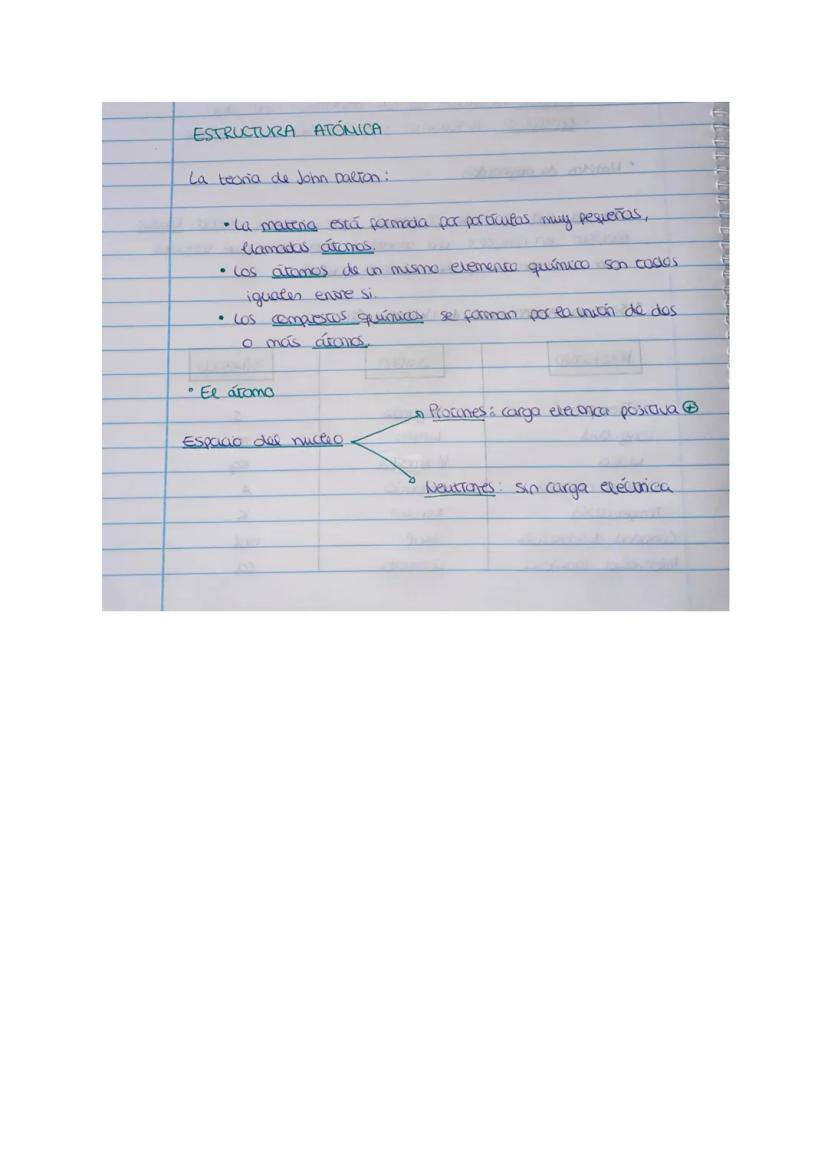 ESTRUCTURA ATÓMICA
La teoría de John Dalton:
• La materia está formada por partículas muy pequeñas,
llamadas átomos.
• Los átomos de un mismo elemento químico son todos
iguales entre si.
• Los compuestos químicos se forman por la unión de dos
o más átomos.
• El átomo
Protones: carga eléctrica positiva ⊕
Espacio del nucleo
Neutrones: sin carga eléctrica